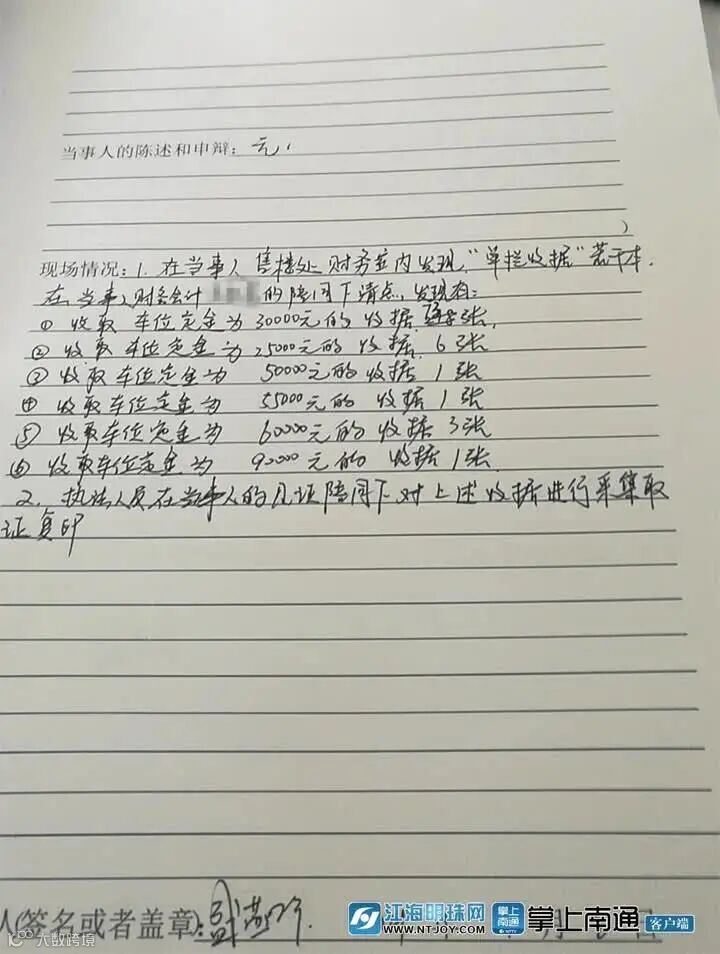 当事人的陈述和申辩：无.
现场情况：1. 在当事人售楼处财务室内发现，“单栏收据”若干本.
在当事人财务会计的陪同下清点，发现有：
① 收取车位定金为30000元的收据 张,
② 收取车位定金为25000元的收据 6张
③ 收取车位定金为 50000元的收据 1张
④ 收取车位定金为 55000元的收据 1张
⑤ 收取车位定金为 60000元的收据 3张
⑥ 收取车位定金为 90000元的收据1张.
2. 执法人员在当事人的 陪同下对上述收据进行采集取
证复印
人(签名或者盖章):
江海明珠网
WWW.NTJOY.COM
掌上南通
掌上南通
客户端
大数跨境